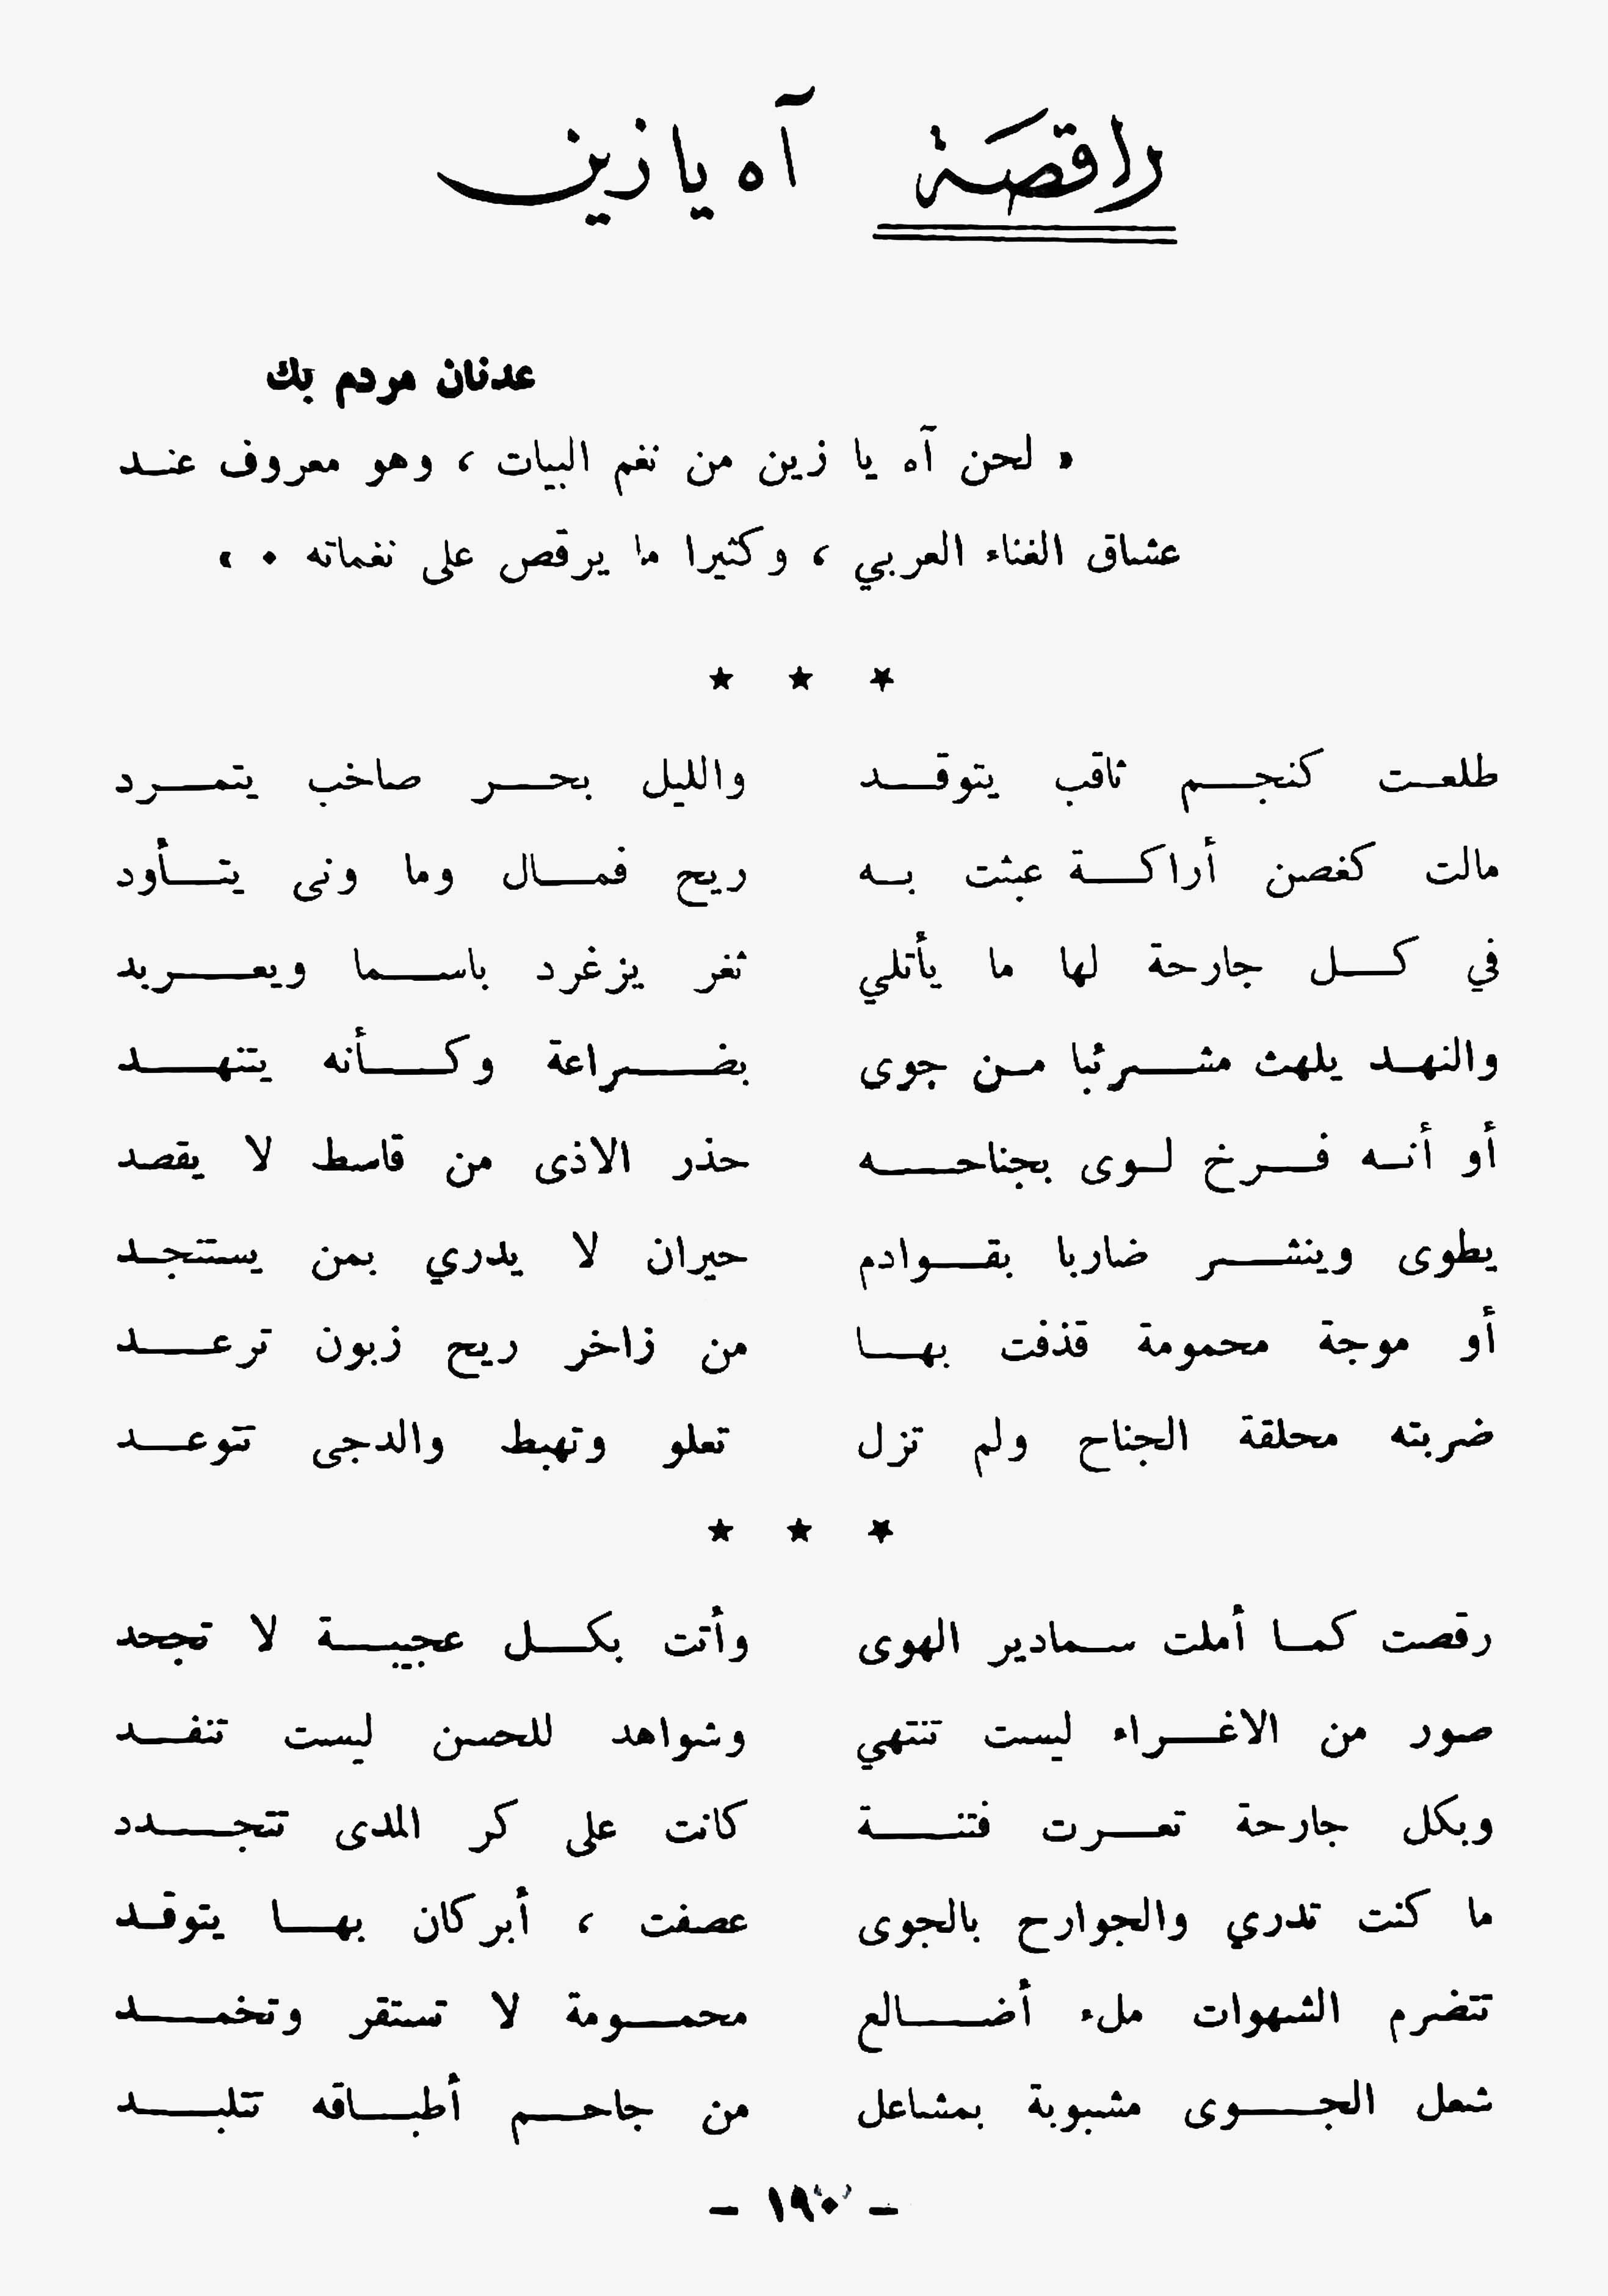 راقصة آه يا زين
عدنان مردم بك
« لحن آه يا زين من نغم البيات ، وهو معروف عند
عشاق الغناء العربي ، وكثيرا ما يرقص على نغماته . »
★ ★ ★
طلعت كنجم ثاقب يتوقد والليل بحر صاخب يتمرد
مالت كغصن أراكة عبثت به ريح فمال وما ونى يتأود
في كل جارحة لها ما يأتلي ثغر يزغرد باسما ويعربد
والنهد يلهث مشرئبا من جوى بضراعة وكأنه يتنهد
أو أنه فرخ لوى بجناحه حذر الاذى من قاسط لا يقصد
يطوى وينشر ضاربا بقوادم حيران لا يدري بمن يستنجد
أو موجة محمومة قذفت بها من زاخر ريح زبون ترعد
ضربته محلقة الجناح ولم تزل تعلو وتهبط والدجى تتوعد
★ ★ ★
رقصت كما أملت سمادير الهوى وأتت بكل عجيبة لا تجحد
صور من الاغراء ليست تنتهي وشواهد للحسن ليست تنفد
وبكل جارحة تعرت فتنة كانت على كر المدى تتجدد
ما كنت تدري والجوارح بالجوى عصفت ، أبركان بها يتوقد
تتضرم الشهوات ملء أضالع محمومة لا تستقر وتخمد
شعل الجوى مشبوبة بمشاعل من جاحم أطباقه تتلبد
- ١٩٠ -